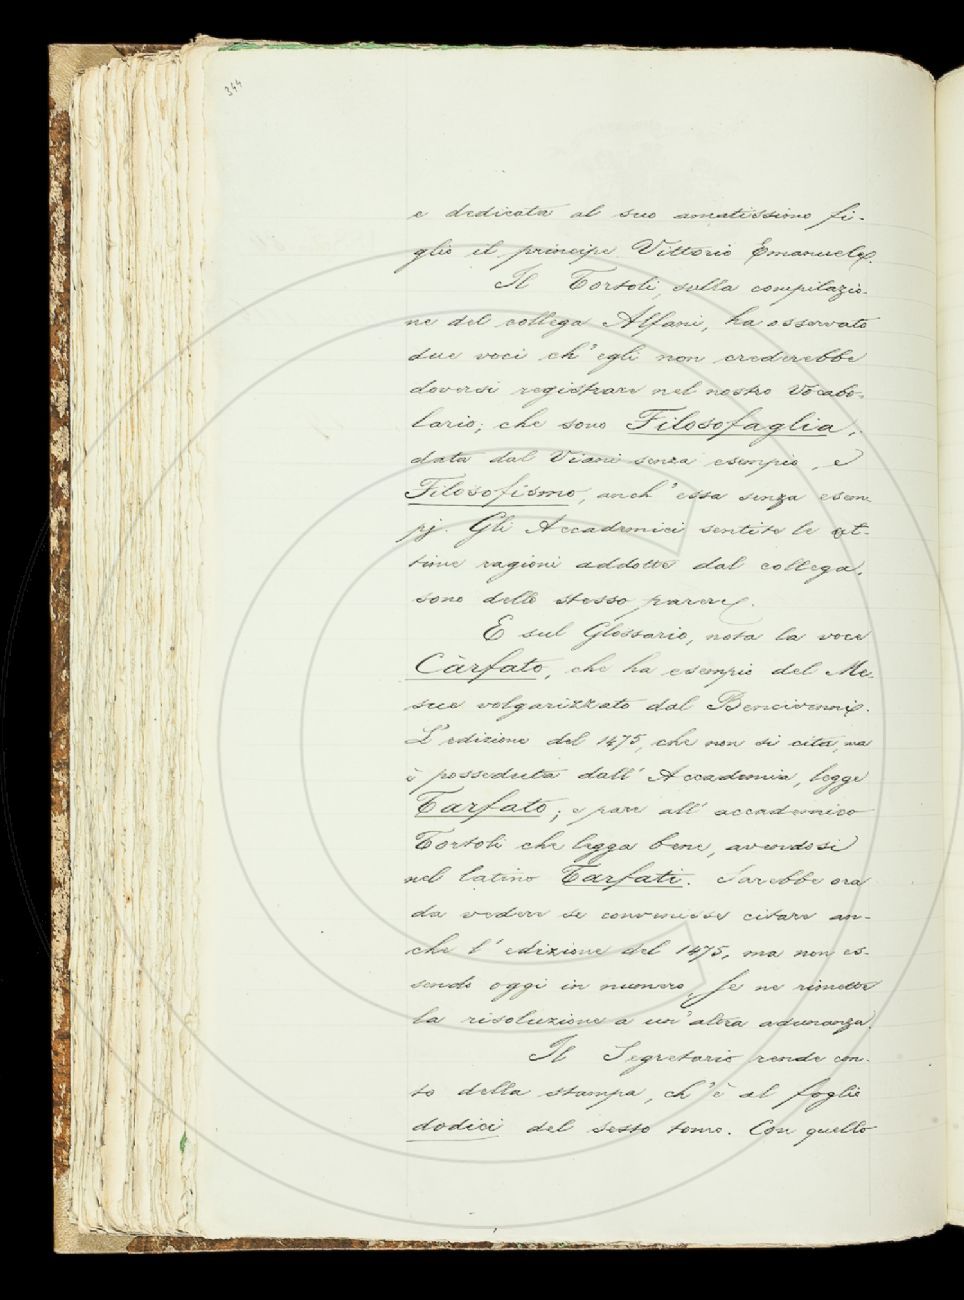 344
e dedicata al suo amatissimo fi-
glio il principe Vittorio Emanuele.
Il Tortoli, sulla compilazio-
ne del collega Alfani, ha osservato
due voci ch'egli non crederebbe
doversi registrare nel nostro Vocabo-
lario; che sono Filosofaglia,
data dal Viani senza esempio, e
Filosofismo, anch'essa senza esem-
pj. Gli Accademici sentite le ot-
time ragioni addotte dal collega,
sono dello stesso parere.
E sul Glossario, nota la voce
Càrfato, che ha esempio del Me-
sue volgarizzato dal Bencivenni.
L'edizione del 1475, che non si cita, ma
è posseduta dall'Accademia, legge
Tarfato; e pare all'accademico
Tortoli che legga bene, avendosi
nel latino Tarfati. Sarebbe ora
da vedere se convenisse citare an-
che l'edizione del 1475, ma non es-
sendo oggi in numero, se ne rimette
la risoluzione a un'altra adunanza.
Il Segretario rende con-
to della stampa, ch'è al foglio
dodici del sesto tomo. Con quello